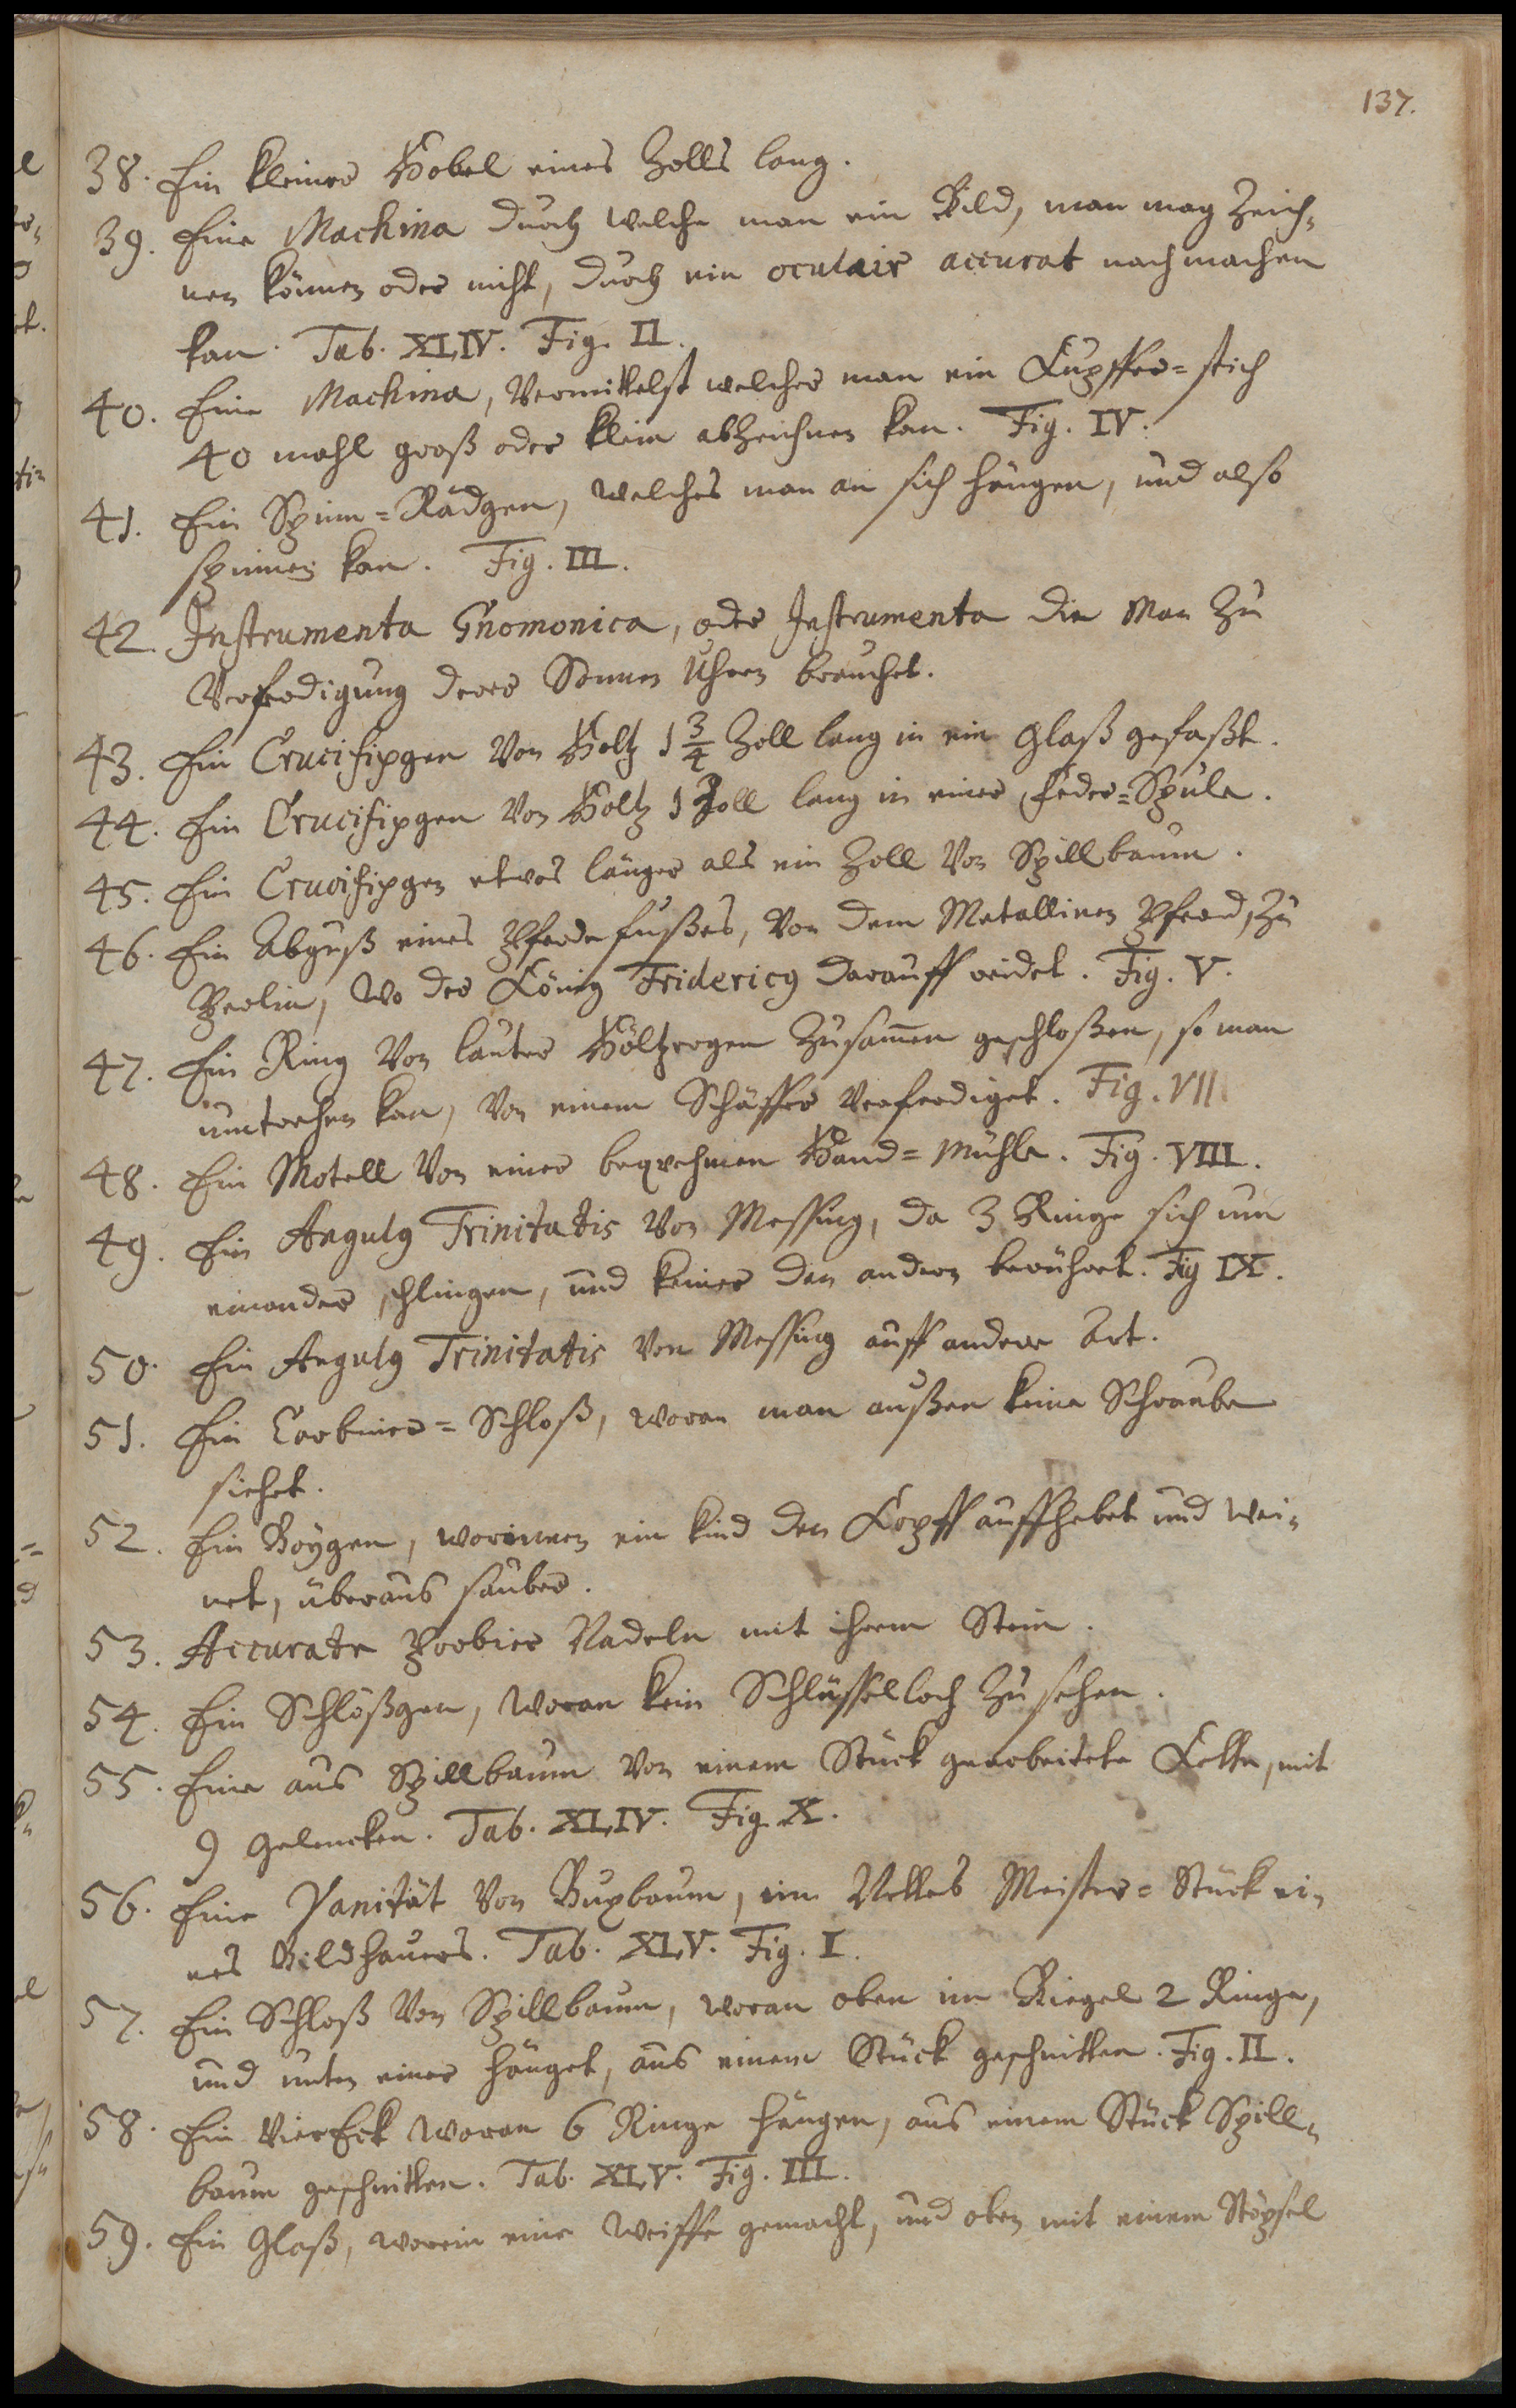 137.
38. Ein kleiner Hobel eines Zolls lang.
39. Eine Machina durch welche man ein Bild, man mag zeich-
nen können oder nicht, durch ein oculair accurat nachmachen
kan. Tab. XLIV. Fig. II.
40. Eine Machina, vermittelst welcher man ein Kupffer=stich
40 mahl groß oder klein abzeichnen kan. Fig. IV.
41. Ein Spinn=Rädgen, welches man an sich hängen, und also
spinnen kan. Fig. III.
42. Instrumenta Gnomonica, oder Instrumenta die man zu
Verferdigung derer Sonnen Uhren brauchet.
43. Ein Crucifixgen von Holtz 1 3/4 Zoll lang in ein Glaß gefaßt.
44. Ein Crucifixgen von Holtz 1 Zoll lang in einer Feder=Spule.
45. Ein Crucifixgen etwas länger als ein Zoll von Spillbaum.
46. Ein Abguß eines Pferdefußes, von dem Metallinen Pferd, zu
Berlin, wo der König Fridericus darauff reidet. Fig. V.
47. Ein Ring von lauter Höltzergen zusam̅en geschloßen, so man
umtrehen kan, von einem Schäffer verferdiget. Fig. VII
48. Ein Motell von einer beqvehmen Hand=Mühle. Fig. VIII.
49. Ein Angulus Trinitatis von Messing, da 3 Ringe sich um
einander schlingen, und keiner den andern berühret. Fig IX.
50. Ein Angulus Trinitatis von Messing auff andere Art.
51. Ein Carbiner=Schloß, woran man außen keine Schraube
siehet.
52. Ein Boÿgen, worinnen ein Kind den Kopff auffhebet und wei-
net, überaus sauber.
53. Accurate Probier Nadeln mit ihrem Stein.
54. Ein Schlößgen, woran kein Schlüsselloch zu sehen.
55. Eine aus Spillbaum von einem Stück gearbeitete Kette, mit
9 Gelencken. Tab. XLIV. Fig. X.
56. Eine Vanität von Buxbaum, ein Nettes Meister=Stück ei-
nes Bildhauers. Tab. XLV. Fig. I.
57. Ein Schloß von Spillbaum, woran oben im Riegel 2 Ringe,
und unten einer hänget, aus einem Stück geschnitten. Fig. II.
58. Ein VierEck woran 6 Ringe hängen, aus einem Stück Spill-
baum geschnitten. Tab. XLV. Fig. III.
59. Ein Glaß, worein eine Weiffe gemacht, und oben mit einem Stöpsel